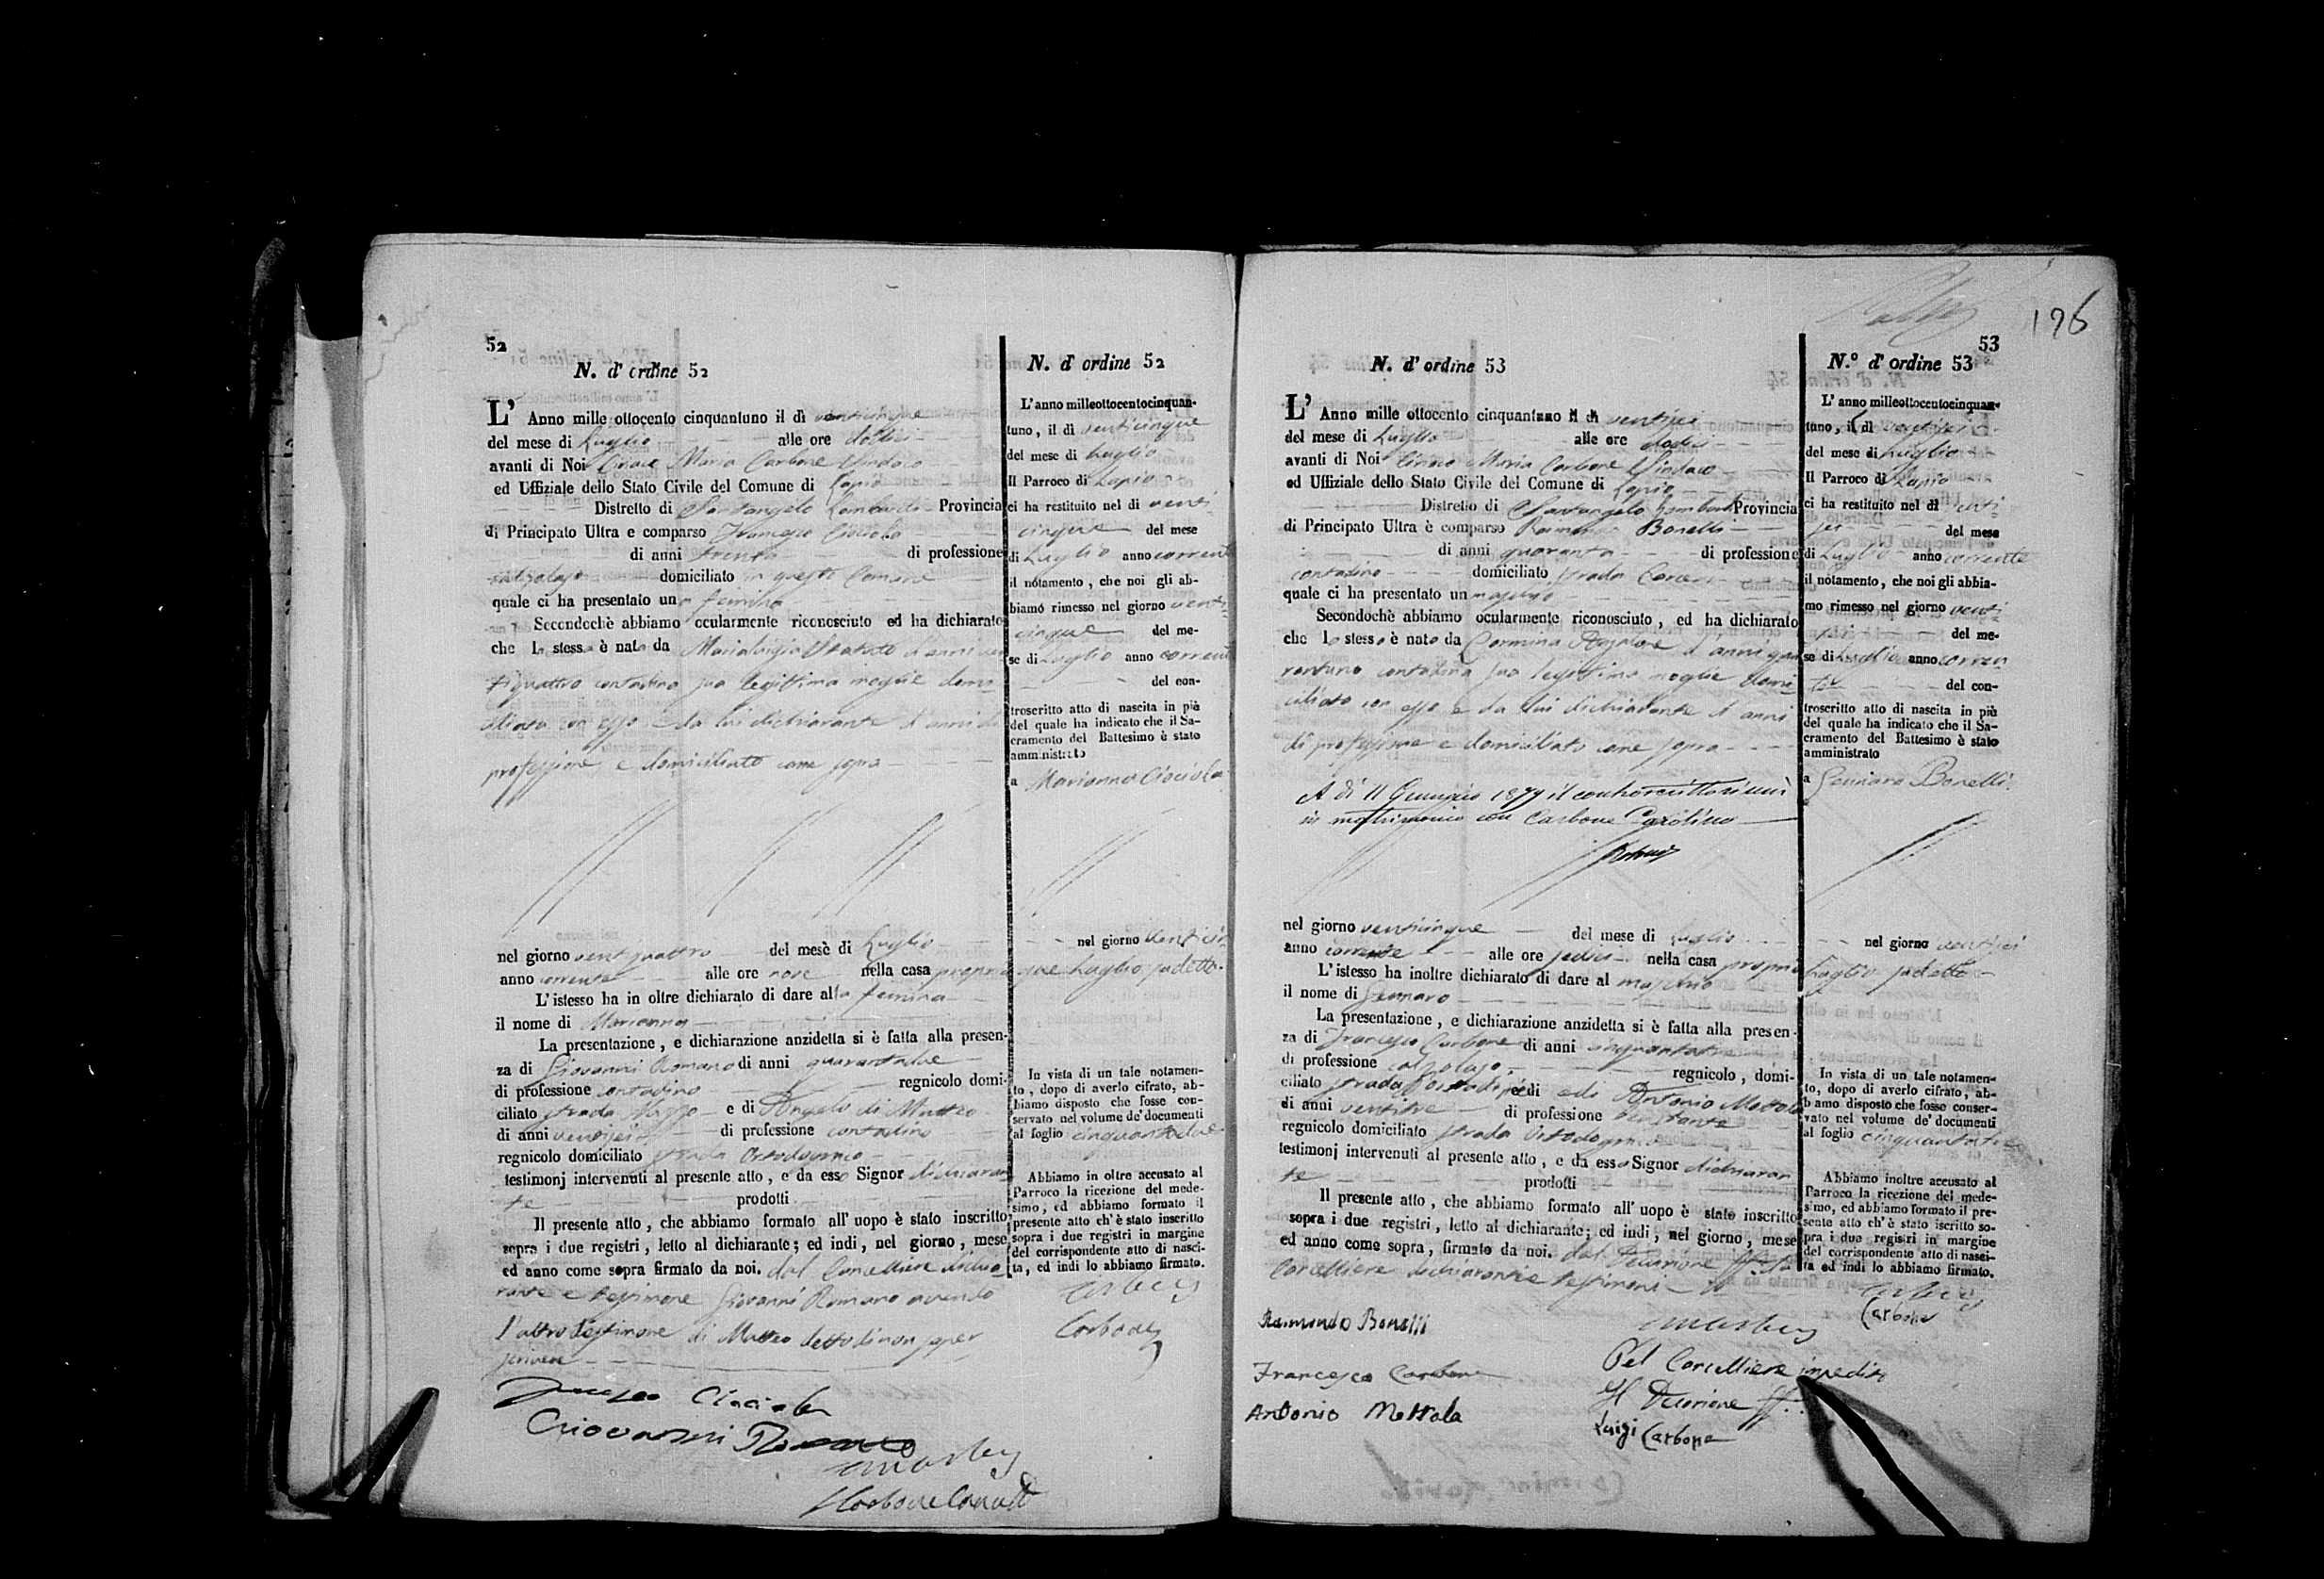 52
N. d' ordine 52
L' Anno mille ottocento cinquantuno il dì venticinque
del mese di Luglio alle ore dodici
avanti di Noi Ciriaco Maria Carbone Sindaco
ed Uffiziale dello Stato Civile del Comune di Lapio
Distretto di Santangelo Lombardi Provincia
di Principato Ultra e comparso Francesco Ciociola
di anni trenta di professione
calzolajo domiciliato in questo Comune
quale ci ha presentato una femina
Secondochè abbiamo ocularmente riconosciuto ed ha dichiarato
che la stessa è nata da Marialuigia d'anni ven
tiquattro contadina sua legittima moglie domi
ciliata con esso e da lui dichiarante d'anni di
professione e domiciliato come sopra
nel giorno ventiquattro del mese di Luglio
anno corrente alle ore nove nella casa propria
L'istesso ha in oltre dichiarato di dare alla femina
il nome di Marianna
La presentazione, e dichiarazione anzidetta si è fatta alla presen-
za di Giovanni Romano di anni quarantadue
di professione contadino regnicolo domi-
ciliato strada e di Angelo di Matteo
di anni ventisei di professione contadino
regnicolo domiciliato strada
testimonj intervenuti al presente atto, e da esso Signor dichiaran
te prodotti
Il presente atto, che abbiamo formato all' uopo è stato inscritto
sopra i due registri, letto al dichiarante; ed indi, nel giorno, mese
ed anno come sopra firmato da noi. dal Cancelliere dichia
rante e testimone Giovanni Romano avendo
l'altro testimone di Matteo detto di non saper
scrivere
Francesco Ciociola
Giovanni Romano
N. d' ordine 52
L'anno milleottocentocinquan-
tuno, il dì venticinque
del mese di Luglio
Il Parroco di Lapio
ci ha restituito nel dì venti
cinque del mese
di Luglio anno corrente
il notamento, che noi gli ab-
biamo rimesso nel giorno venti
cinque del me-
se di Luglio anno corrente
del con-
troscritto atto di nascita in piè
del quale ha indicato che il Sa-
cramento del Battesimo è stato
amministrato
a Marianna Ciociola
nel giorno venticin
que Luglio sudetto
In vista di un tale notamen-
to, dopo di averlo cifrato, ab-
biamo disposto che fosse con-
servato nel volume de' documenti
al foglio cinquantadue
Abbiamo in oltre accusato al
Parroco la ricezione del mede-
simo, ed abbiamo formato il
presente atto ch'è stato inscritto
sopra i due registri in margine
del corrispondente atto di nasci-
ta, ed indi lo abbiamo firmato.
Carbone
196
53
N. d' ordine 53
L' Anno mille ottocento cinquantuno il dì ventisei
del mese di Luglio alle ore dodici
avanti di Noi Ciriaco Maria Carbone Sindaco
ed Uffiziale dello Stato Civile del Comune di Lapio
Distretto di Santangelo Lombardi Provincia
di Principato Ultra è comparso Raimondo Bonelli
di anni quaranta di professione
contadino domiciliato strada
quale ci ha presentato un maschio
Secondochè abbiamo ocularmente riconosciuto, ed ha dichiarato
che lo stesso è nato da Carmina d'anni qua
rantuno contadina sua legittima moglie domi
ciliata con esso e da lui dichiarante d'anni
di professione e domiciliato come sopra
A dì 11 Gennajo 1879 il controscritto si unì
in matrimonio con Carbone Carolina
nel giorno venticinque del mese di Luglio
anno corrente alle ore sedici nella casa propria
L'istesso ha inoltre dichiarato di dare al maschio
il nome di Gennaro
La presentazione, e dichiarazione anzidetta si è fatta alla presen-
za di Francesco Carbone di anni cinquantatre
di professione calzolajo regnicolo, domi-
ciliato strada e di Antonio Mottola
di anni ventitre di professione
regnicolo domiciliato strada
testimonj intervenuti al presente atto, e da esso Signor dichiaran
te prodotti
Il presente atto, che abbiamo formato all' uopo è stato inscritto
sopra i due registri, letto al dichiarante; ed indi, nel giorno, mese
ed anno come sopra, firmato da noi. dal Decurione ff. da
Cancelliere dichiarante e testimoni
Raimondo Bonelli
Francesco Carbone
Antonio Mottola
Pel Cancelliere impedito
Il Decurione ff.
Luigi Carbone
N.° d' ordine 53
L' anno milleottocentocinquan-
tuno, il dì ventisei
del mese di Luglio
Il Parroco di Lapio
ci ha restituito nel dì venti
sei del mese
di Luglio anno corrente
il notamento, che noi gli abbia-
mo rimesso nel giorno venti
sei del me-
se di Luglio anno corren
te del con-
troscritto atto di nascita in piè
del quale ha indicato che il Sa-
cramento del Battesimo è stato
amministrato
a Gennaro Bonelli
nel giorno ventisei
Luglio sudetto
In vista di un tale notamen-
to, dopo di averlo cifrato, ab-
biamo disposto che fosse conser-
vato nel volume de' documenti
al foglio cinquantatre
Abbiamo inoltre accusato al
Parroco la ricezione del mede-
simo, ed abbiamo formato il pre-
sente atto ch'è stato iscritto so-
pra i due registri in margine
del corrispondente atto di nasci-
ta ed indi lo abbiamo firmato.
Carbone